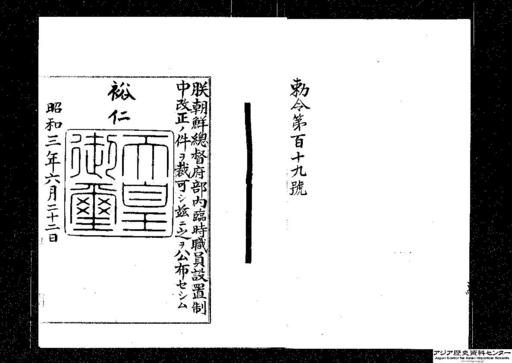 勅令第百十九號
朕朝鮮總督府部內臨時職員設置制
中改正ノ件ヲ裁可シ玆ニ之ヲ公布セシム
裕仁
天皇御璽
昭和三年六月二十二日
アジア歴史資料センター
Japan Center for Asian Historical Records